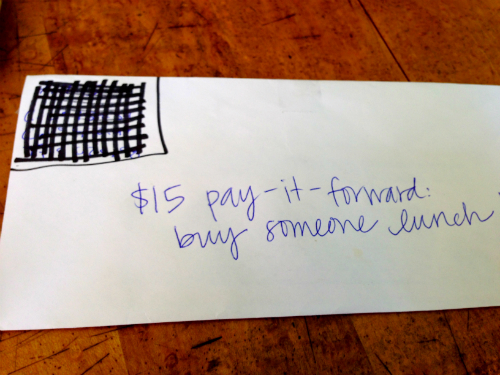 $15 pay-it-forward:
buy someone lunch